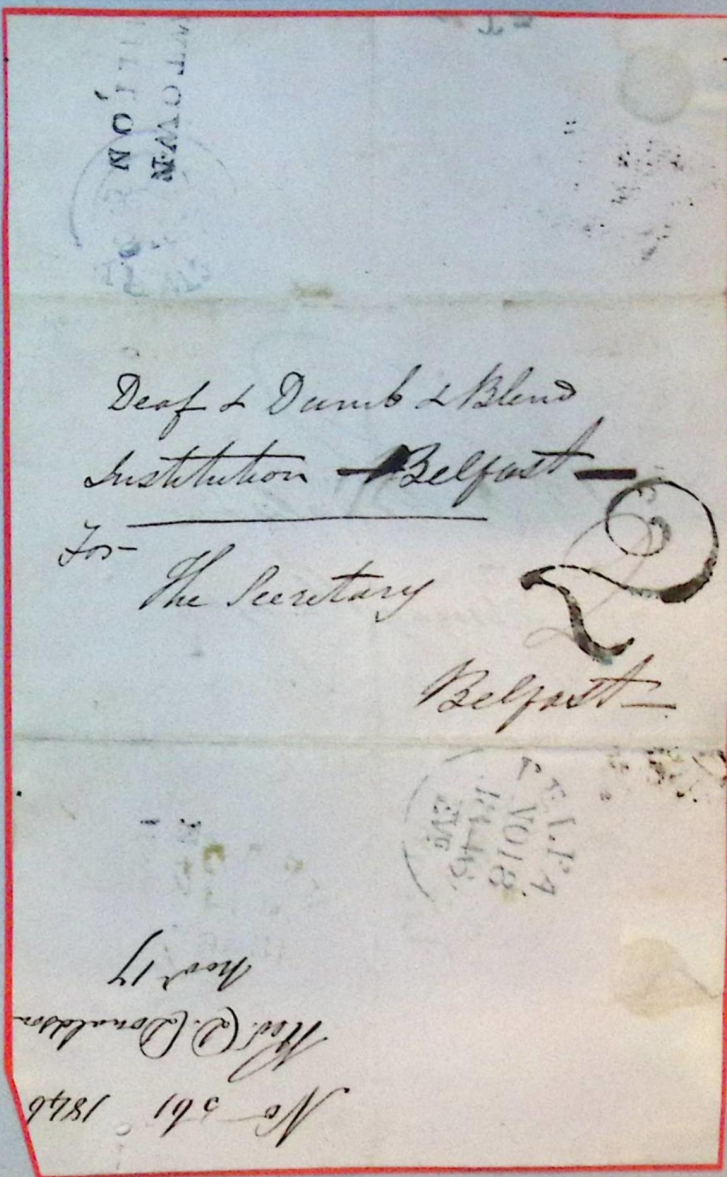 WTOWN
ILTON
Deaf & Dumb & Blind
Institution - Belfast -
For
The Secretary
2
Belfast
BELFA
NO 18
1846
EVE
No 561 1846
Revd D. Donaldson
Novr 17